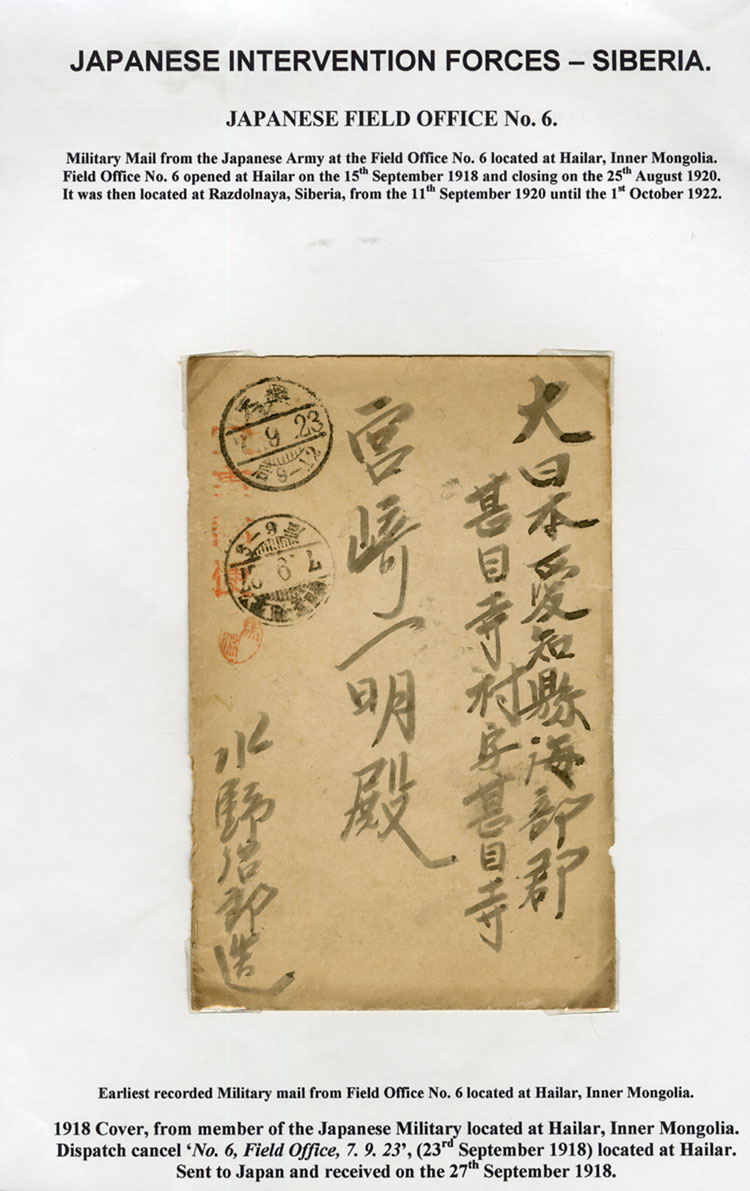 JAPANESE INTERVENTION FORCES – SIBERIA.
JAPANESE FIELD OFFICE No. 6.
Military Mail from the Japanese Army at the Field Office No. 6 located at Hailar, Inner Mongolia.
Field Office No. 6 opened at Hailar on the 15th September 1918 and closing on the 25th August 1920.
It was then located at Razdolnaya, Siberia, from the 11th September 1920 until the 1st October 1922.
大日本愛知縣海部郡
甚目寺村字甚目寺
宮崎一明殿
9 .23
9-12
水野
Earliest recorded Military mail from Field Office No. 6 located at Hailar, Inner Mongolia.
1918 Cover, from member of the Japanese Military located at Hailar, Inner Mongolia.
Dispatch cancel ‘No. 6, Field Office, 7. 9. 23’, (23rd September 1918) located at Hailar.
Sent to Japan and received on the 27th September 1918.